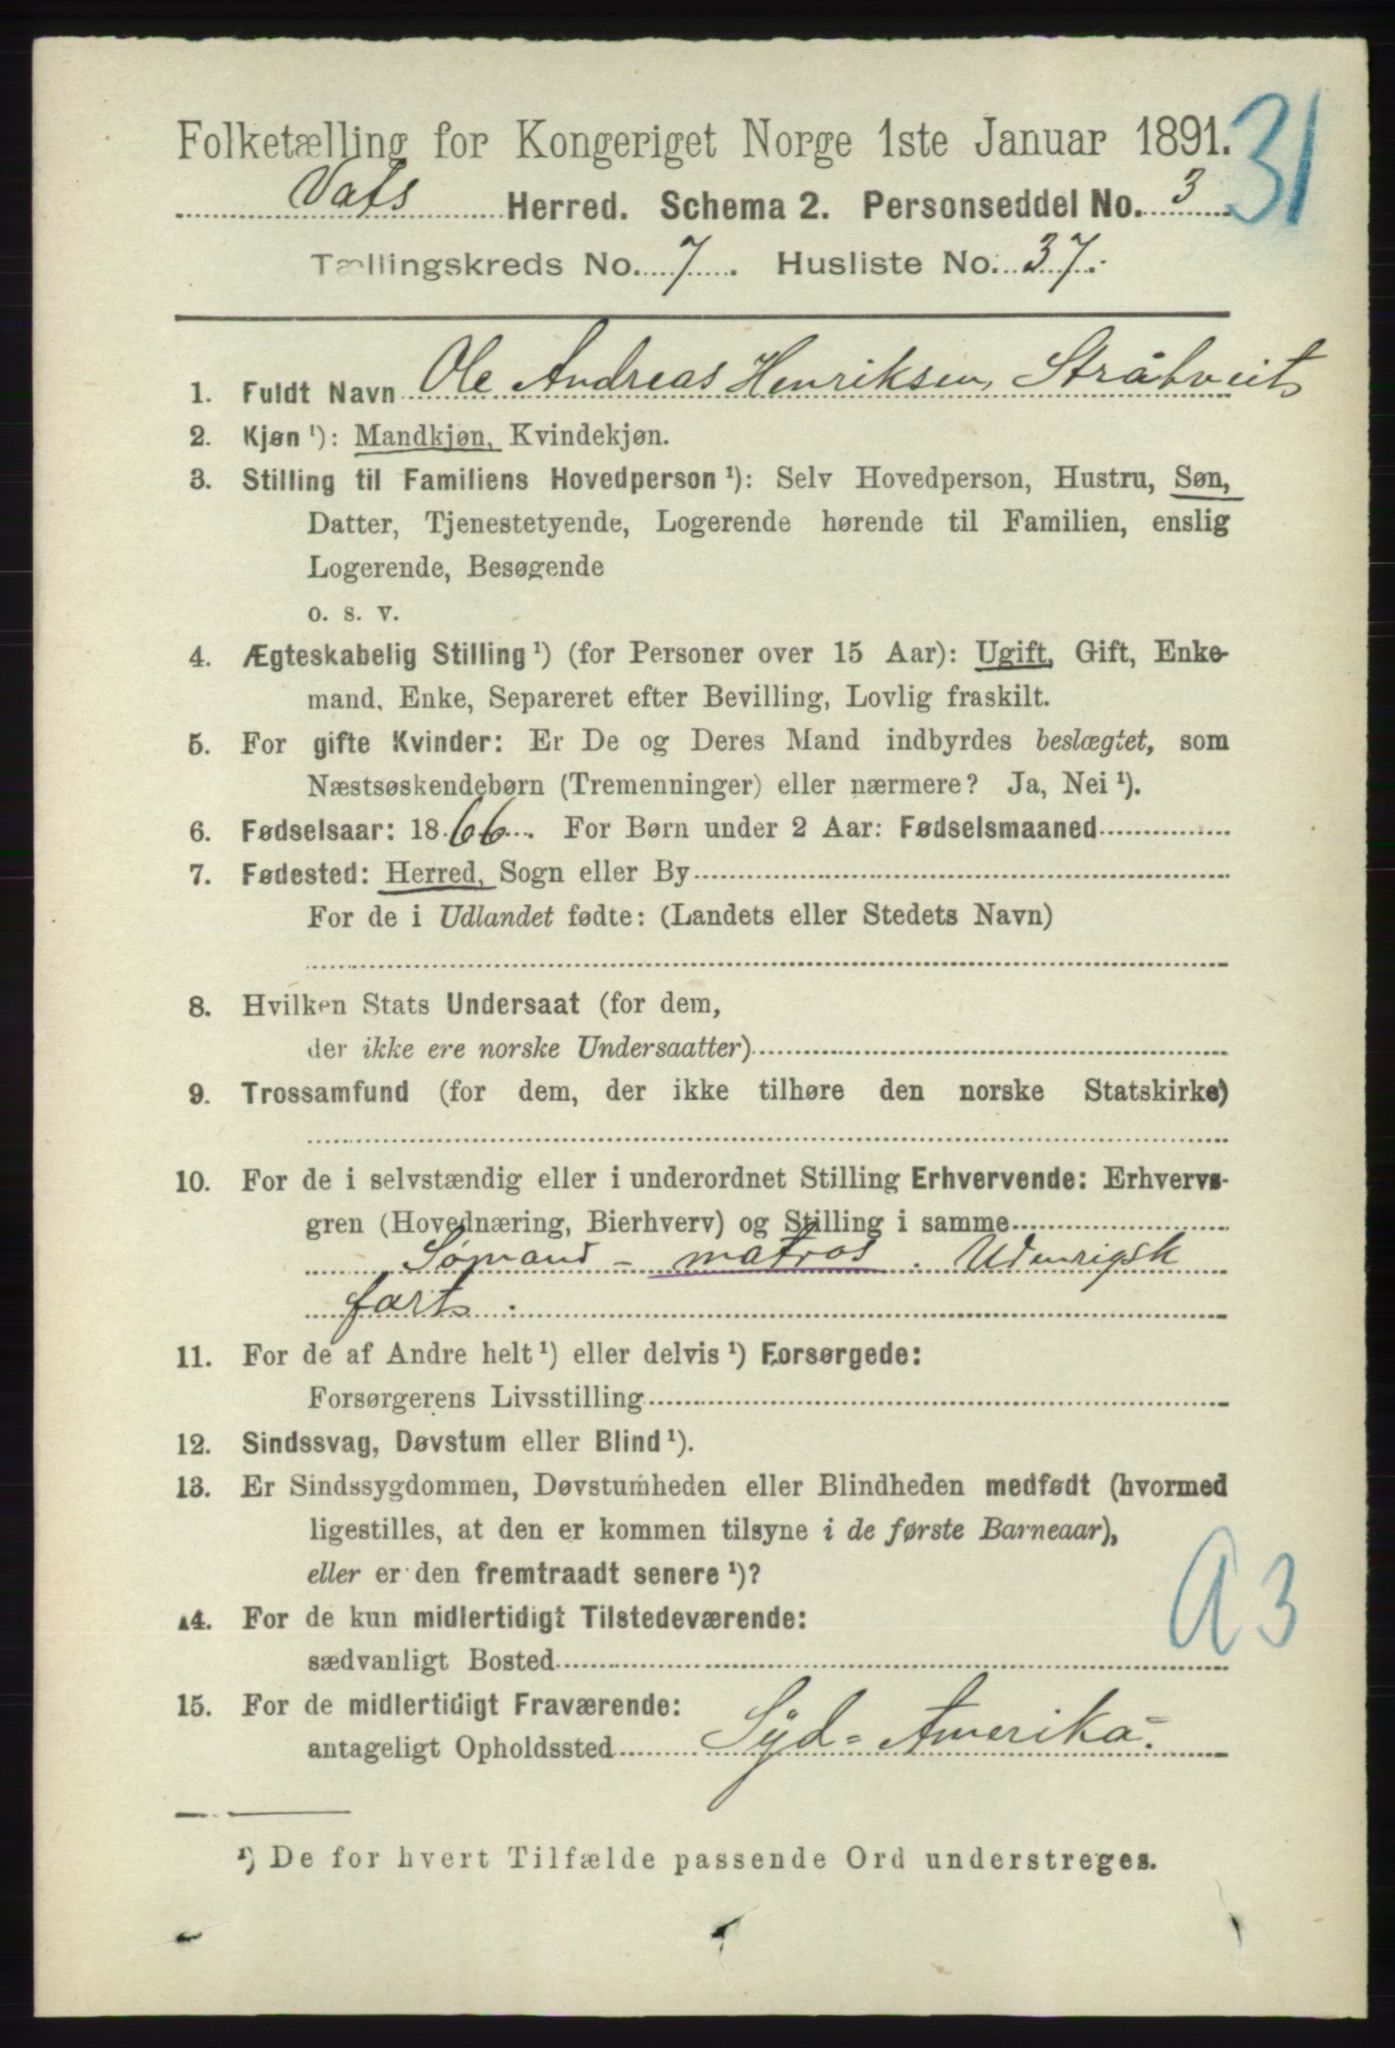 Folketælling for Kongeriget Norge 1ste Januar 1891. 31
Vats Herred. Schema 2. Personseddel No. 3
Tællingskreds No. 7. Husliste No. 37.
1. Fuldt Navn Ole Andreas Henriksen Stråtveit
2. Kjøn ¹): Mandkjøn, Kvindekjøn.
3. Stilling til Familiens Hovedperson ¹): Selv Hovedperson, Hustru, Søn,
Datter, Tjenestetyende, Logerende hørende til Familien, enslig
Logerende, Besøgende
o. s. v.
4. Ægteskabelig Stilling ¹) (for Personer over 15 Aar): Ugift, Gift, Enke-
mand, Enke, Separeret efter Bevilling, Lovlig fraskilt.
5. For gifte Kvinder: Er De og Deres Mand indbyrdes beslægtet, som
Næstsøskendebørn (Tremenninger) eller nærmere? Ja, Nei ¹).
6. Fødselsaar: 1866. For Børn under 2 Aar: Fødselsmaaned
7. Fødested: Herred, Sogn eller By
For de i Udlandet fødte: (Landets eller Stedets Navn)
8. Hvilken Stats Undersaat (for dem,
der ikke ere norske Undersaatter)
9. Trossamfund (for dem, der ikke tilhøre den norske Statskirke)
10. For de i selvstændig eller i underordnet Stilling Erhvervende: Erhvervs-
gren (Hovednæring, Bierhverv) og Stilling i samme
Sømand - matros. Udenrigsk
fart.
11. For de af Andre helt ¹) eller delvis ¹) Forsørgede:
Forsørgerens Livsstilling
12. Sindssvag, Døvstum eller Blind ¹).
13. Er Sindssygdommen, Døvstumheden eller Blindheden medfødt (hvormed
ligestilles, at den er kommen tilsyne i de første Barneaar),
eller er den fremtraadt senere ¹)?
a 3
14. For de kun midlertidigt Tilstedeværende:
sædvanligt Bosted
15. For de midlertidigt Fraværende:
antageligt Opholdssted Syd=Amerika.
¹) De for hvert Tilfælde passende Ord understreges.